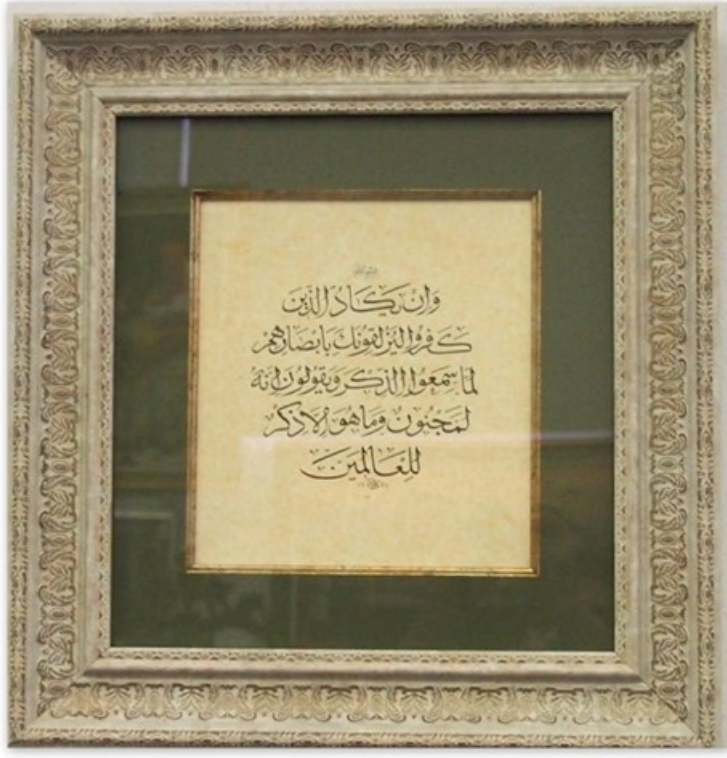 وَاِنْ يَكَادُ الَّذِينَ
كَفَرُوا لَيُزْلِقُونَكَ بِاَبْصَارِهِمْ
لَمَّا سَمِعُوا الذِّكْرَ وَيَقُولُونَ اِنَّهُ
لَمَجْنُونٌ وَمَا هُوَ اِلَّا ذِكْرٌ
لِلْعَالَمِينَ